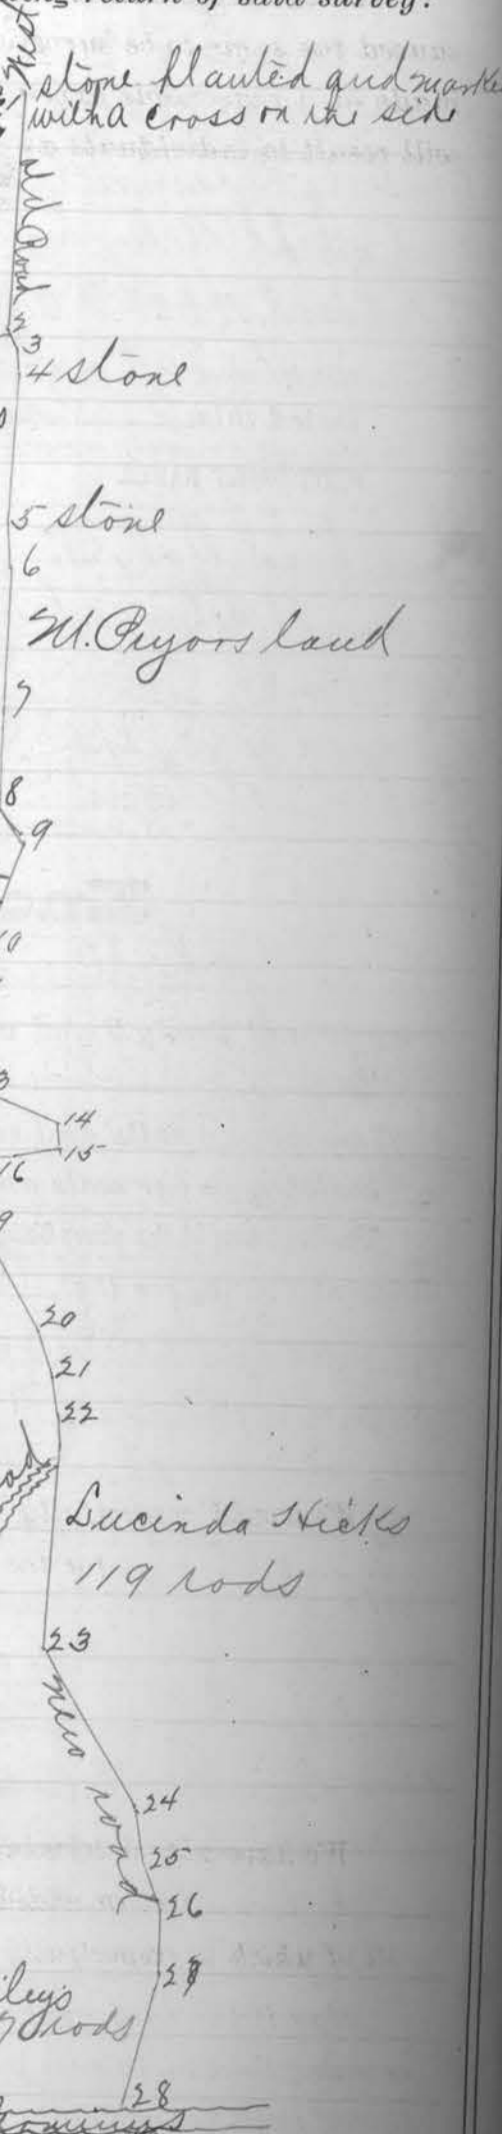 return of said survey.
West
stone planted and marke
with a cross on the side
old Road
2
3
4 stone
5 stone
6
M. Pryors land
7
8
9
10
3
14
15
16
9
20
21
22
ad
Lucinda Hicks
119 rods
23
new road
24
25
26
27
leys
7 rods
28